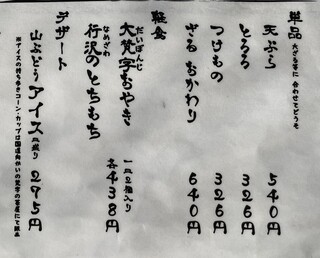 単品 大ざる等に 合わせてどうぞ
天ぷら 540円
とろろ 326円
つけもの 326円
ざる おかわり 640円
軽食
大梵字おやき 一皿二個入り
だいぼんじ
行沢のとちもち 各438円
なめざわ
デザート
山ぶどうアイス 皿盛り 295円
※アイスの持ち歩きコーン・カップは国道向かいの売店にて販売